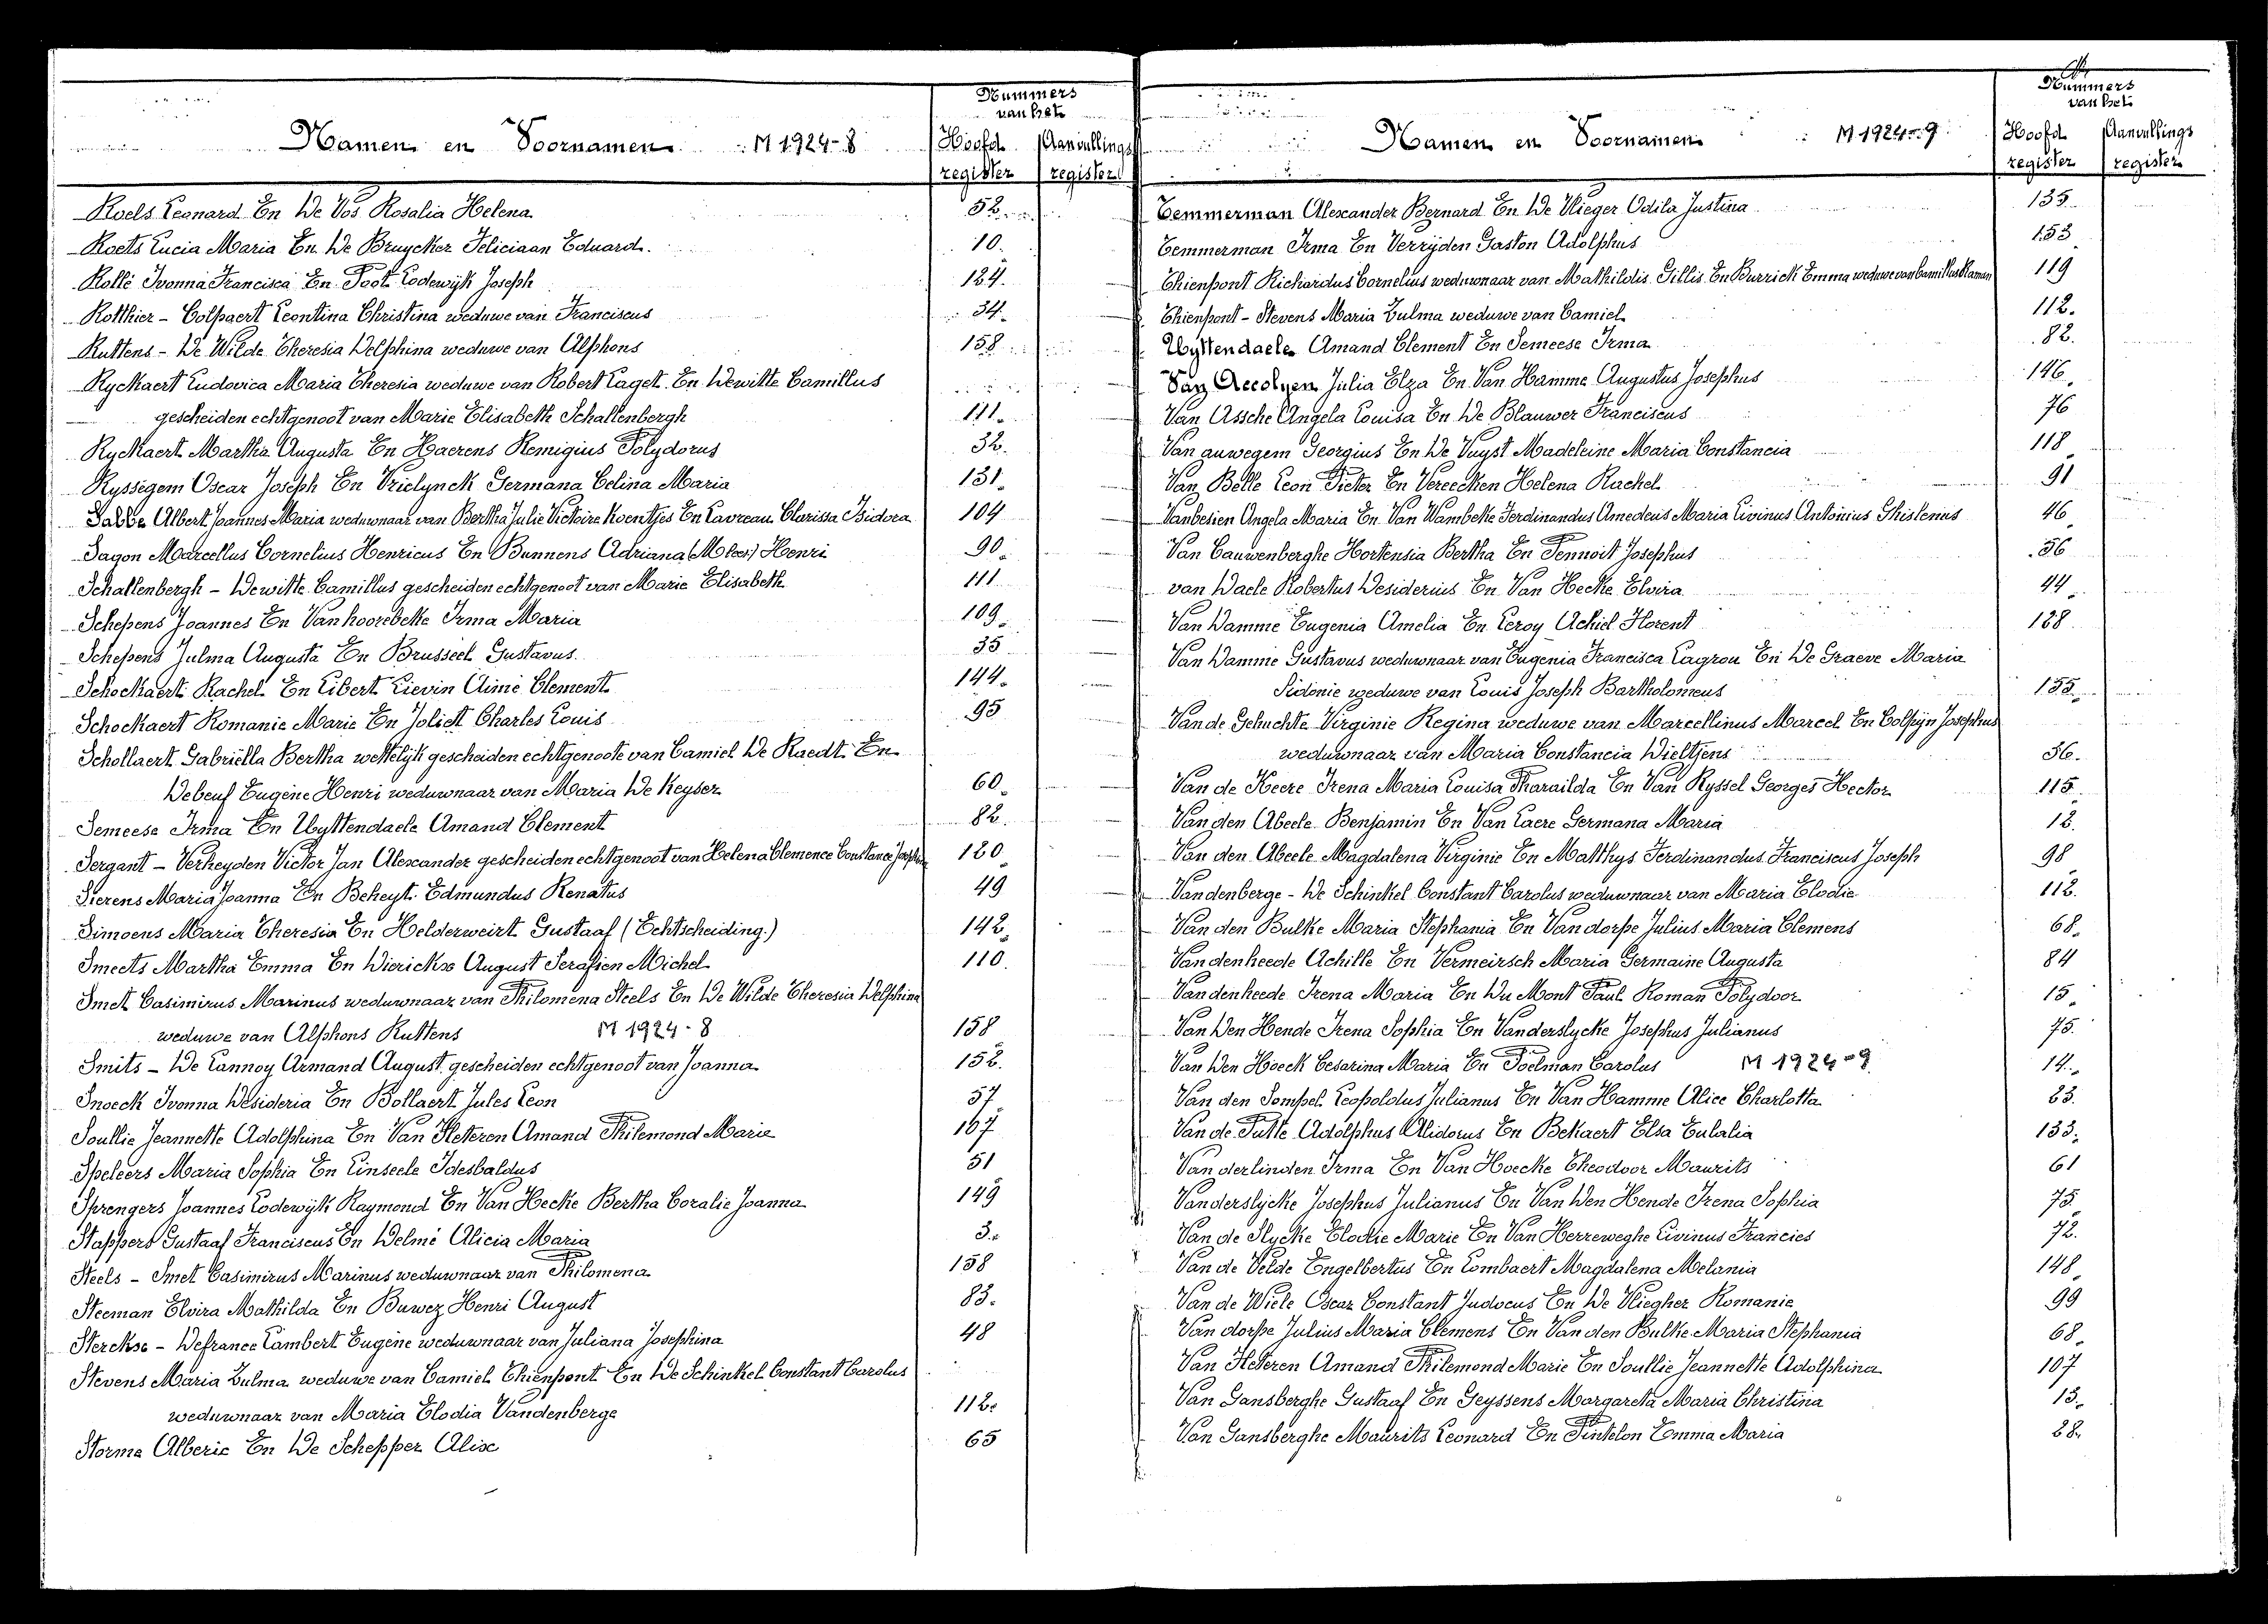 Nummers
van het
Namen en Voornamen M 1924-8 Hoofd Aanvullings
register register
Roels Leonard En De Vos Rosalia Helena 52
Roets Lucia Maria En De Bruycker Feliciaan Eduard. 10
Rollé Ivonna Francisca En Poot Lodewijk Joseph 124
Rotthier - Colpaert Leontina Christina weduwe van Franciscus 34
Ruttens - De Wilde Theresia Delphina weduwe van Alphons 158
Ryckaert Ludovica Maria Theresia weduwe van Robert Laget En Dewitte Camillus
gescheiden echtgenoot van Marie Elisabeth Schallenbergh 111
Ryckaert Martha Augusta En Haerens Remigius Polydorus 32
Ryssegem Oscar Joseph En Vrielynck Germana Celina Maria 131
Sabbe Albert Joannes Maria weduwnaar van Bertha Julie Victoire Koentjes En Lavreau Clarissa Isidora 104
Sagon Marcellus Cornelius Henricus En Bunnens Adriana Henri 90
Schallenbergh - Dewitte Camillus gescheiden echtgenoot van Marie Elisabeth 111
Schepens Joannes En Vanhoorebeke Irma Maria 109
Schepens Julma Augusta En Brusseel Gustavus 35
Schockaert Rachel En Libert Lievin Aimé Clement 144
Schockaert Romanie Marie En Joliet Charles Louis 95
Schollaert Gabriëlla Bertha wettelijk gescheiden echtgenoote van Camiel De Raedt En
Debeuf Eugène Henri weduwnaar van Maria De Keyser 60
Semeese Irma En Uyttendaele Amand Clement 82
Sergant - Verheyden Victor Jan Alexander gescheiden echtgenoot van Helena Clemence Constance Josephine 120
Sierens Maria Joanna En Beheyt Edmundus Renatus 49
Simoens Maria Theresia En Helderweirt Gustaaf (Echtscheiding.) 142
Smeets Martha Emma En Dierickx August Serafien Michel 110
Smet Casimirus Marinus weduwnaar van Philomena Steels En De Wilde Theresia Delphina
weduwe van Alphons Ruttens M 1924-8 158
Smits - De Lannoy Armand August gescheiden echtgenoot van Joanna 152
Snoeck Ivonna Desideria En Bollaert Jules Leon 57
Soullie Jeannette Adolphina En Van Fleteren Amand Philemond Marie 107
Speleers Maria Sophia En Linseele Idesbaldus 51
Sprengers Joannes Lodewijk Raymond En Van Hecke Bertha Coralie Joanna 149
Stappers Gustaaf Franciscus En Delmé Alicia Maria 3
Steels - Smet Casimirus Marinus weduwnaar van Philomena 158
Steeman Elvira Mathilda En Buwez Henri August 83
Sterckx - Defrance Lambert Eugène weduwnaar van Juliana Josephina 48
Stevens Maria Zulma weduwe van Camiel Thienpont En De Schinkel Constant Carolus
weduwnaar van Maria Elodia Vandenberge 112
Storma Alberic En De Schepper Alix 65
Nummers
van het
Namen en Voornamen M 1924-9 Hoofd Aanvullings
register register
Temmerman Alexander Bernard En De Vlieger Odila Justina 135
Temmerman Irma En Verrijden Gaston Adolphus 153
Thienpont Richardus Cornelius weduwnaar van Mathildis Gillis En Burrick Emma weduwe van Camillus Blaman 119
Thienpont - Stevens Maria Zulma weduwe van Camiel 112
Uyttendaele Amand Clement En Semeese Irma 82
Van Accolyen Julia Elza En Van Hamme Augustus Josephus 146
Van Assche Angela Louisa En De Blauwer Franciscus 76
Van auwegem Georgius En De Vuyst Madeleine Maria Constancia 118
Van Belle Leon Pieter En Vereecken Helena Rachel 91
Vanbesien Angela Maria En Van Wambeke Ferdinandus Amedeus Maria Livinus Antonius Ghislenus 46
Van Cauwenberghe Hortensia Bertha En Pennoit Josephus 56
van Daele Robertus Desiderius En Van Hecke Elvira 44
Van Damme Eugenia Amelia En Leroy Achiel Florent 128
Van Damme Gustavus weduwnaar van Eugenia Francisca Lagrou En De Graeve Maria
Sidonie weduwe van Louis Joseph Bartholomeus 155
Van de Gehuchte Virginie Regina weduwe van Marcellinus Marcel En Colpijn Josephus
weduwnaar van Maria Constancia Wieltjens 36
Van de Keere Irena Maria Louisa Pharaïlda En Van Ryssel Georges Hector 115
Van den Abeele Benjamin En Van Laere Germana Maria 12
Van den Abeele Magdalena Virginie En Matthys Ferdinandus Franciscus Joseph 98
Vandenberge - De Schinkel Constant Carolus weduwnaar van Maria Elodie 112
Van den Bulke Maria Stephania En Van dorpe Julius Maria Clemens 68
Vandenheede Achille En Vermeirsch Maria Germaine Augusta 84
Vandenheede Irena Maria En Du Mont Paul Roman Polydoor 15
Van Den Hende Irena Sophia En Vanderslycke Josephus Julianus 75
Van Den Hoeck Cesarina Maria En Poelman Carolus M 1924-9 14
Van den Sompel Leopoldus Julianus En Van Hamme Alice Charlotta 23
Van de Putte Adolphus Alidorus En Bekaert Elsa Eulalia 133
Van derlinden Irma En Van Hoecke Theodoor Maurits 61
Vanderslycke Josephus Julianus En Van Den Hende Irena Sophia 75
Van de Slycke Elodie Marie En Van Herreweghe Livinus Francies 72
Van de Velde Engelbertus En Lombaert Magdalena Melania 148
Van de Wiele Oscar Constant Judocus En De Vliegher Romanie 99
Van dorpe Julius Maria Clemens En Van den Bulke Maria Stephania 68
Van Fleteren Amand Philemond Marie En Soullie Jeannette Adolphina 107
Van Gansberghe Gustaaf En Geyssens Margareta Maria Christina 13
Van Gansberghe Maurits Leonard En Pintelon Emma Maria 28